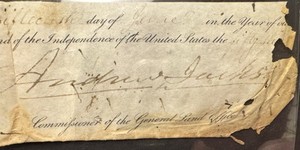 day of June in the Year of our
nd of the Independence of the United States the
Andrew Jacks
Commissioner of the General Land Office